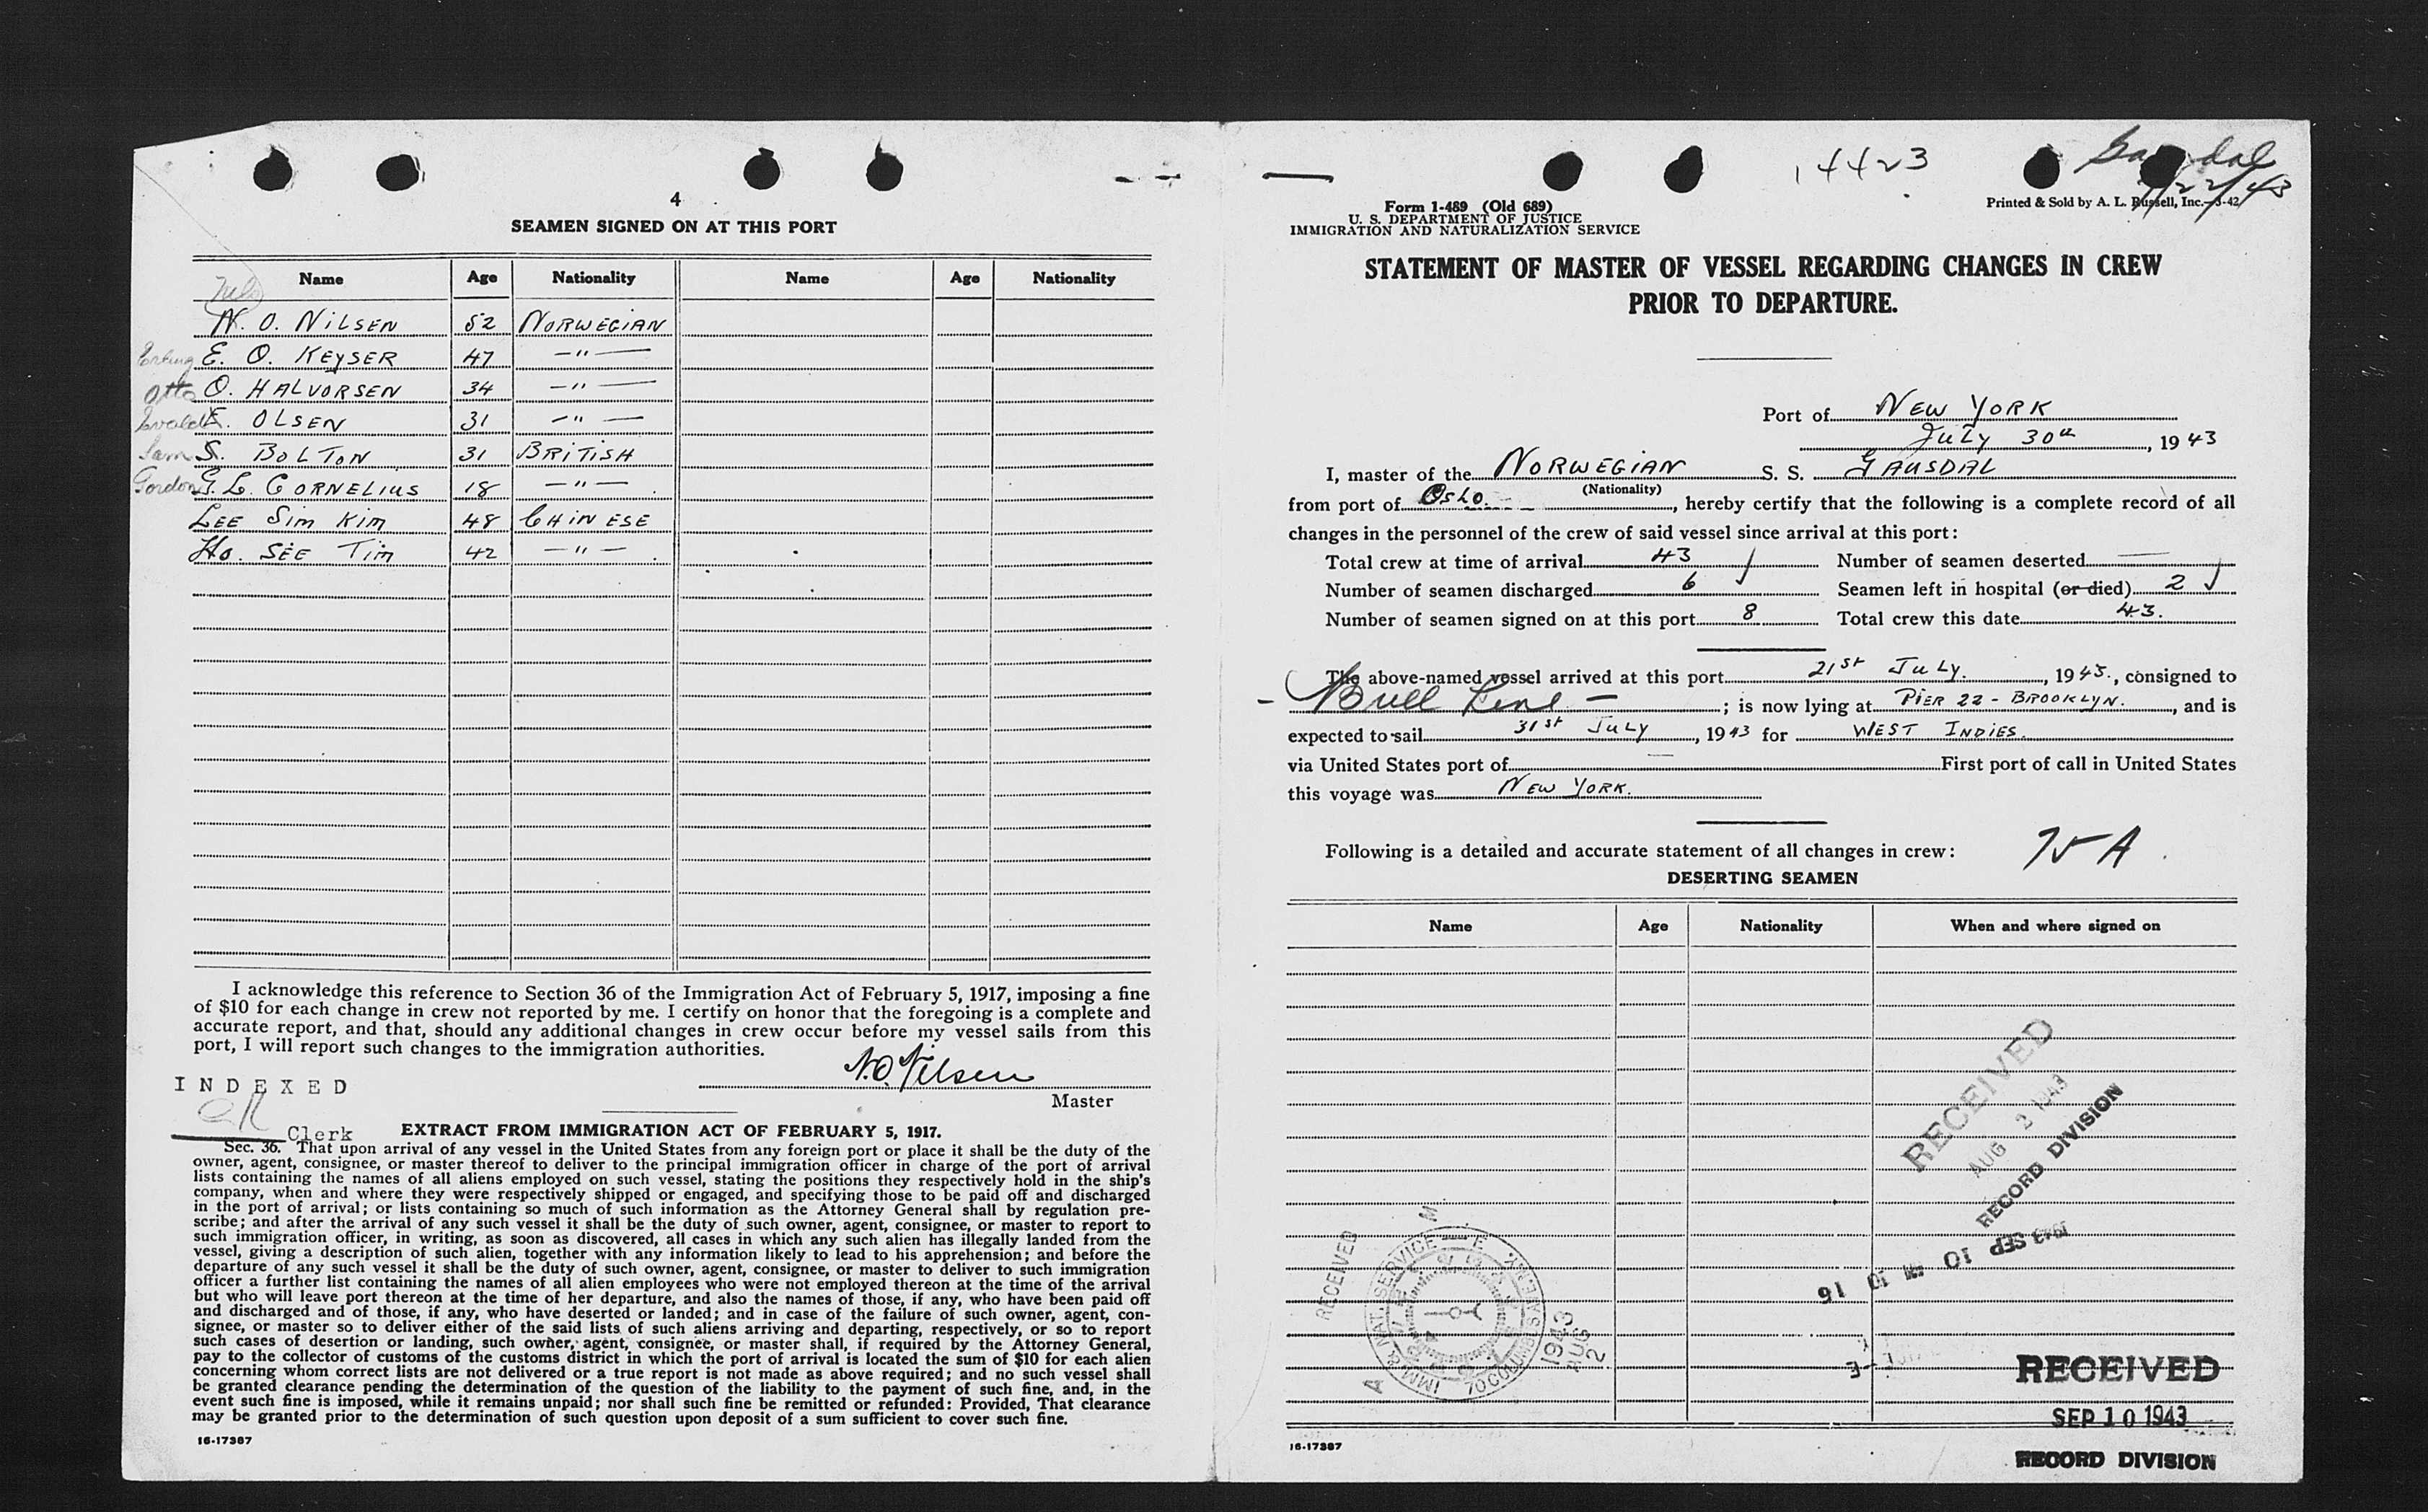 4
SEAMEN SIGNED ON AT THIS PORT
Name Age Nationality Name Age Nationality
N. O. NILSEN 52 NORWEGIAN
Erling E. O. KEYSER 47 —"—
Otto O. HALVORSEN 34 —"—
Evald E. OLSEN 31 —"—
Sam S. BOLTON 31 BRITISH
Gordon G. L. CORNELIUS 18 —"—
LEE SIM KIM 48 CHINESE
HO. SEE TIM 42 —"—
I acknowledge this reference to Section 36 of the Immigration Act of February 5, 1917, imposing a fine
of $10 for each change in crew not reported by me. I certify on honor that the foregoing is a complete and
accurate report, and that, should any additional changes in crew occur before my vessel sails from this
port, I will report such changes to the immigration authorities.
N.O. Nilsen
INDEXED
Master
Clerk
EXTRACT FROM IMMIGRATION ACT OF FEBRUARY 5, 1917.
Sec. 36. That upon arrival of any vessel in the United States from any foreign port or place it shall be the duty of the
owner, agent, consignee, or master thereof to deliver to the principal immigration officer in charge of the port of arrival
lists containing the names of all aliens employed on such vessel, stating the positions they respectively hold in the ship's
company, when and where they were respectively shipped or engaged, and specifying those to be paid off and discharged
in the port of arrival; or lists containing so much of such information as the Attorney General shall by regulation pre-
scribe; and after the arrival of any such vessel it shall be the duty of such owner, agent, consignee, or master to report to
such immigration officer, in writing, as soon as discovered, all cases in which any such alien has illegally landed from the
vessel, giving a description of such alien, together with any information likely to lead to his apprehension; and before the
departure of any such vessel it shall be the duty of such owner, agent, consignee, or master to deliver to such immigration
officer a further list containing the names of all alien employees who were not employed thereon at the time of the arrival
but who will leave port thereon at the time of her departure, and also the names of those, if any, who have been paid off
and discharged and of those, if any, who have deserted or landed; and in case of the failure of such owner, agent, con-
signee, or master so to deliver either of the said lists of such aliens arriving and departing, respectively, or so to report
such cases of desertion or landing, such owner, agent, consignee, or master shall, if required by the Attorney General,
pay to the collector of customs of the customs district in which the port of arrival is located the sum of $10 for each alien
concerning whom correct lists are not delivered or a true report is not made as above required; and no such vessel shall
be granted clearance pending the determination of the question of the liability to the payment of such fine, and, in the
event such fine is imposed, while it remains unpaid; nor shall such fine be remitted or refunded: Provided, That clearance
may be granted prior to the determination of such question upon deposit of a sum sufficient to cover such fine.
16-17387
14423
Form I-489 (Old 689)
U. S. DEPARTMENT OF JUSTICE
IMMIGRATION AND NATURALIZATION SERVICE
Printed & Sold by A. L. Russell, Inc.—3-42
STATEMENT OF MASTER OF VESSEL REGARDING CHANGES IN CREW
PRIOR TO DEPARTURE.
Port of NEW YORK
July 30th, 1943
I, master of the NORWEGIAN S. S. GAUSDAL
(Nationality)
from port of OSLO, hereby certify that the following is a complete record of all
changes in the personnel of the crew of said vessel since arrival at this port:
Total crew at time of arrival 43 Number of seamen deserted —
Number of seamen discharged 6 Seamen left in hospital (or died) 2
Number of seamen signed on at this port 8 Total crew this date 43.
The above-named vessel arrived at this port 21st July., 1943., consigned to
Bull Line —; is now lying at PIER 22 - BROOKLYN., and is
expected to sail 31st July, 1943 for WEST INDIES.
via United States port of — First port of call in United States
this voyage was NEW YORK.
Following is a detailed and accurate statement of all changes in crew: 75A
DESERTING SEAMEN
Name Age Nationality When and where signed on
RECEIVED
AUG 2 1943
RECORD DIVISION
1943 SEP 10 AM 10 16
RECEIVED
IMM & NAT. SERVICE
70 COLUMBUS AVE N.Y.
1943 AUG 2
RECEIVED
SEP 10 1943
RECORD DIVISION
16-17387